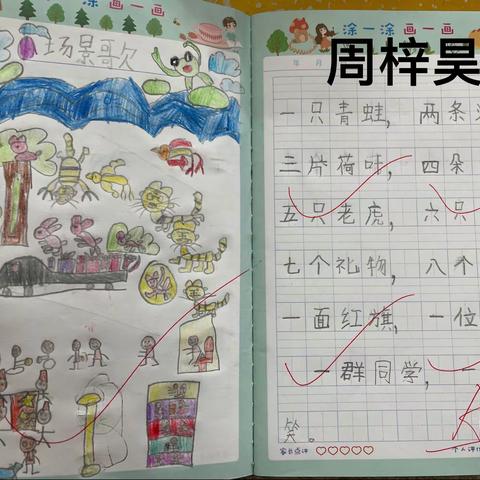 涂一涂 画一画
场景歌
涂一涂 画一画
年 月
周梓昊
一只青蛙，两条
三片荷叶，四朵
五只老虎，六只
七个礼物，八个
一面红旗，一位
一群同学，一
笑。
家长点评
个人评